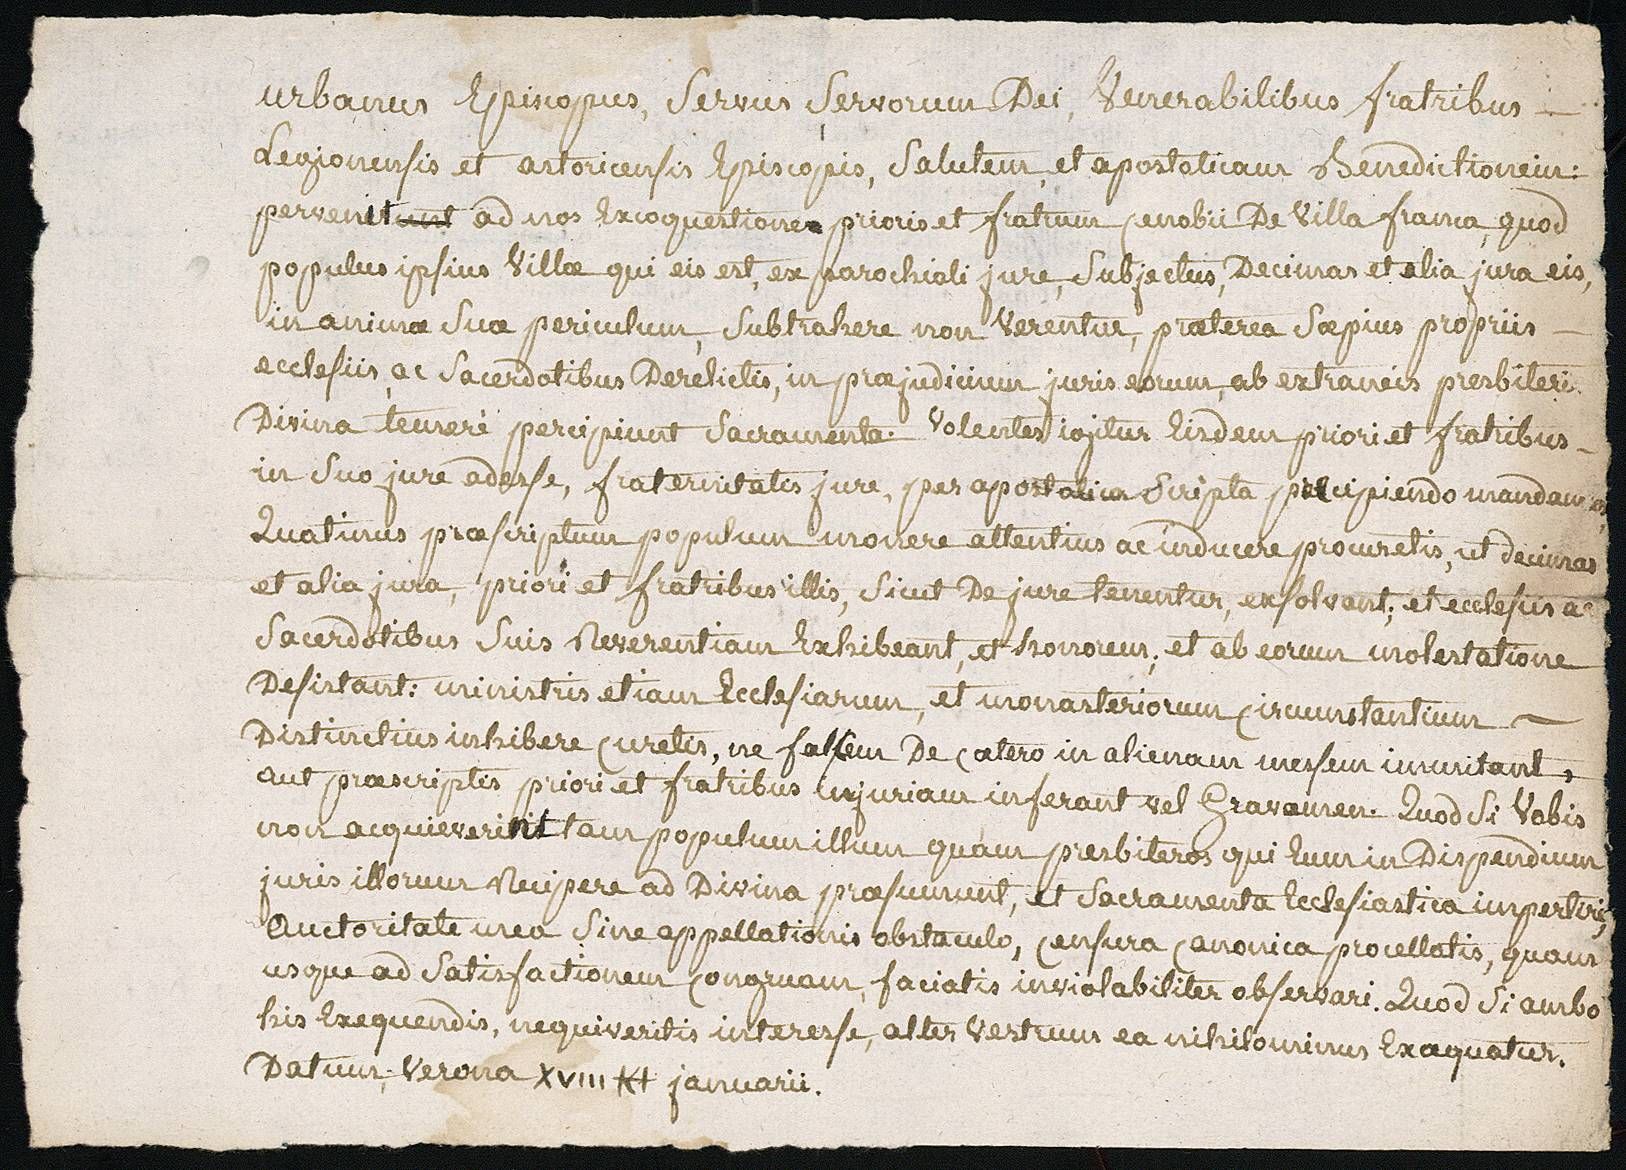 urbanus Episcopus, Servus Servorum Dei, Venerabilibus fratribus —
Legionensis et astoricensis Episcopis, Salutem, et apostolicam Benedictionem:
pervenit ad nos Exconquestione prioris et fratrum Cenobii De Villa franca, quod
populus ipsius Villæ qui eis est, ex parochiali jure, Subjectus, Decimas et alia jura eis,
in animæ Suæ periculum, Subtrahere non Verentur, præterea Sæpius propriis —
ecclesiis, ac Sacerdotibus Derelictis, in præjudicium juris eorum, ab extraneis presbiteri
Divina temerè percipiunt Sacramenta. Volentes igitur Eisdem priori et fratribus —
in Suo jure adesse, fraternitatis jure, per apostolica Scripta precipiendo mandamus,
Quatinus præscriptum populum monere attentius ac inducere procuretis, ut decimas
et alia jura, priori et fratribus illis, Sicut De jure tenentur, exsolvant; et ecclesiis ac
Sacerdotibus Suis Reverentiam Exhibeant, et honorem; et ab eorum molestatione
Desistant: ministris etiam Ecclesiarum, et monasteriorum Circumstantium —
Distinctius inhibere Curetis, ne falcem De Cætero in alienam messem inmittant,
aut præscriptis priori et fratribus injuriam inferant vel Gravamen. Quod Si Vobis
non acquieverint tam populum illum quam presbiteros qui Eum in Dispendium
juris illorum Recipere ad Divina præsumunt, et Sacramenta Ecclesiastica impertiri,
Auctoritate mea Sine appellationis obstaculo, Censura Canonica procellatis, quam
usque ad Satisfactionem Congruam, faciatis inviolabiliter observari. Quod Si ambo
his Exequendis, nequiveritis interesse, alter Vestrum ea nihilominus Exequatur.
Datum, Verona XVIII Kl januarii.